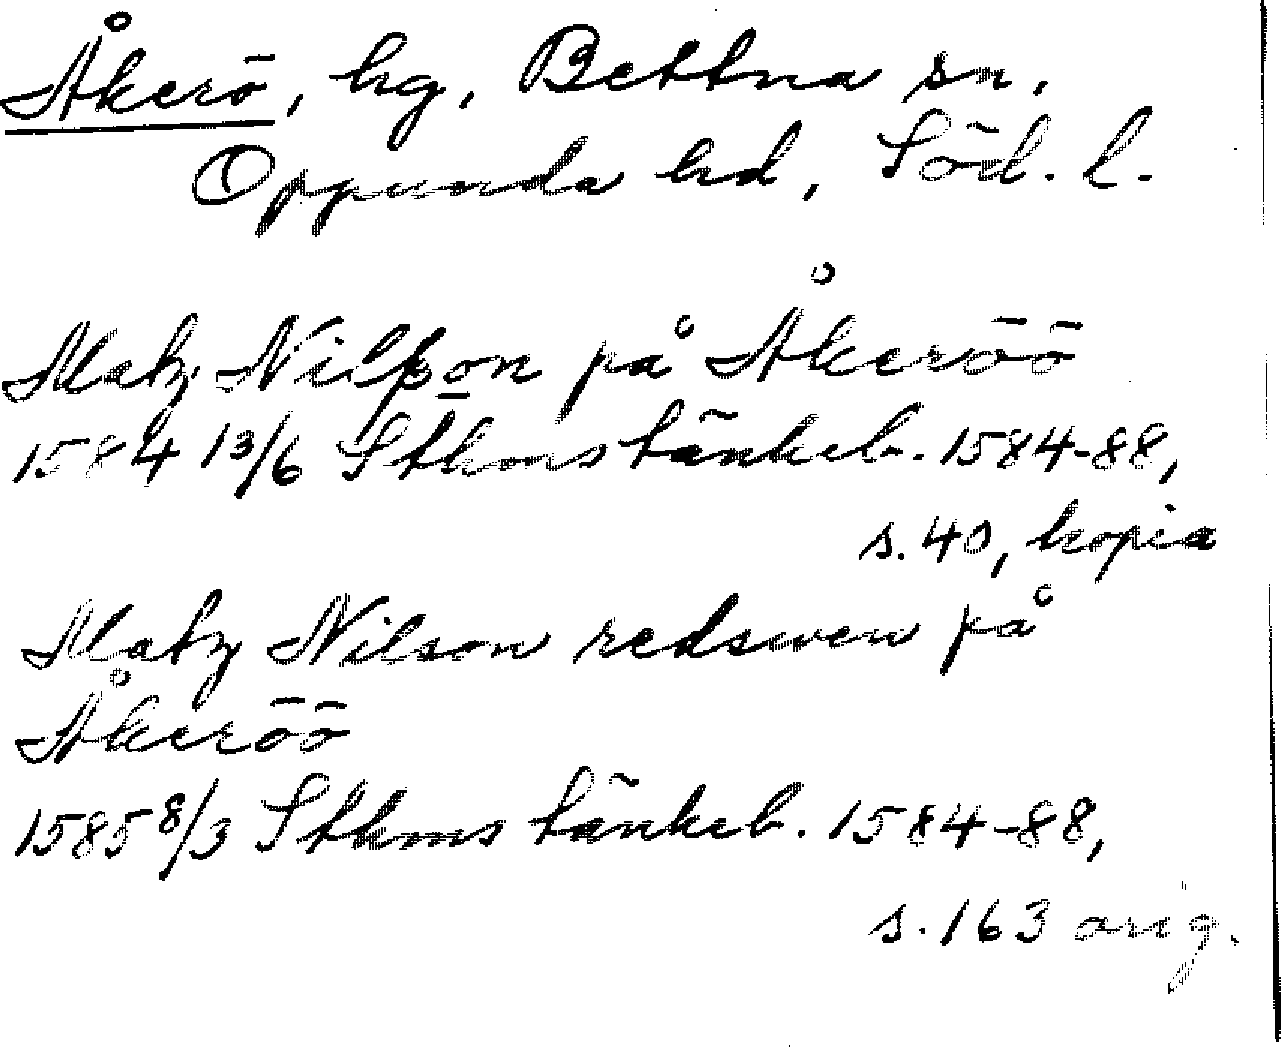 Åkerö, hg, Bettna sn,
Oppunda hd, Söd. l.
Matz Nilßon på Åkeröö
1584 13/6 Sthms tänkeb. 1584-88,
s. 40, kopia
Matz Nilson redswen på
Åkeröö
1585 8/3 Sthms tänkeb. 1584-88,
s. 163 orig.